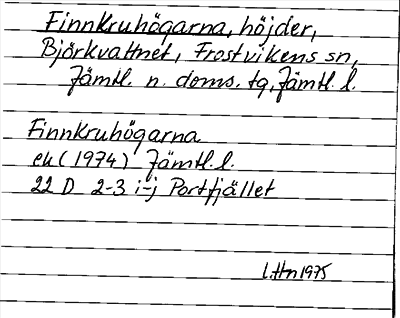 Finnkruhögarna, höjder,
Björkvattnet, Frostvikens sn,
Jämtl. n. doms. tg, Jämtl. l.
Finnkruhögarna
ek (1974) Jämtl. l.
22 D 2-3 i-j Portfjället
LHn 1975